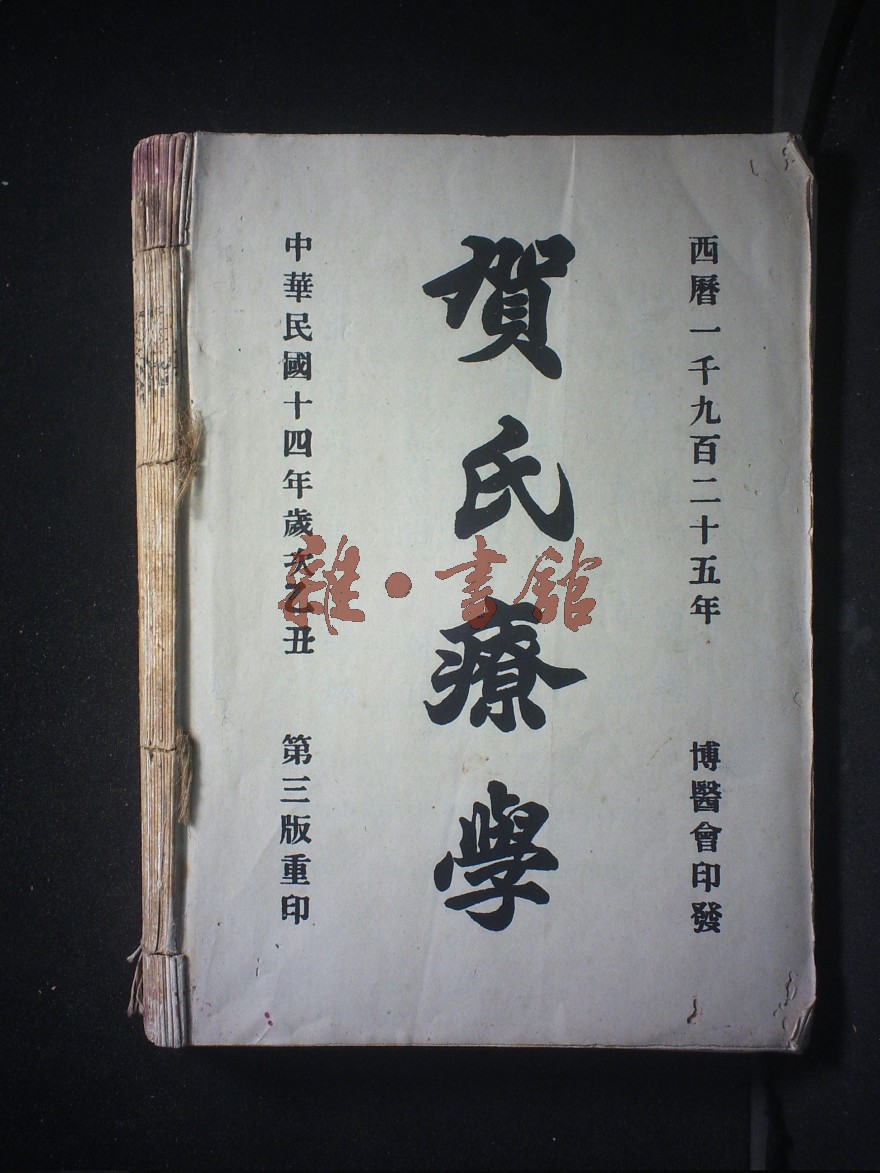 西曆一千九百二十五年 博醫會印發
賀氏療學
中華民國十四年歲次乙丑 第三版重印
雜·書館